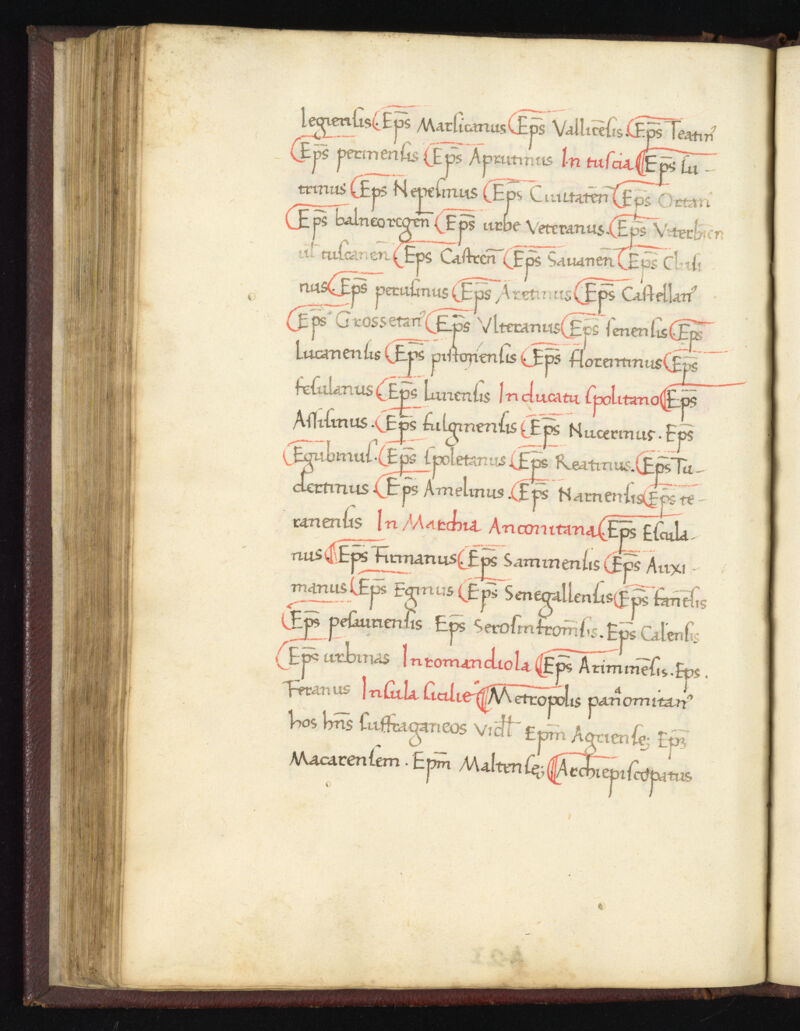 legiensis. Ep̄s Marsicanus Ep̄s Vallicēsis. Ep̄s Teatin⁹
Ep̄s pennensis Ep̄s Aprutinus In tuscia Ep̄s su-
trinus Ep̄s Nepesinus Ep̄s Ciuitaten̄ Ep̄s Ortan
Ep̄s balneoregen̄ Ep̄s urbe Veteranus. Ep̄s Viterbien
ul̄ tuscanen̄. Ep̄s Castren̄ Ep̄s Sauanen̄ Ep̄s Clusi
nus Ep̄s perusinus Ep̄s Aretinus Ep̄s Castellan⁹
Ep̄s Grossetan⁹ Ep̄s Vlteranus Ep̄s senensis Ep̄s
Lucanensis Ep̄s pistoriensis Ep̄s florentinus Ep̄s
fesulanus Ep̄s Lunensis In ducatu spolitano Ep̄s
Assisinus. Ep̄s fulginensis Ep̄s Nucerinus. Ep̄s
Egubinus. Ep̄s spoletanus Ep̄s Reatinus. Ep̄s Tu-
dertinus. Ep̄s Amelinus. Ep̄s Narnensis Ep̄s te-
ranensis In Marchia Anconitana Ep̄s Escula-
nus Ep̄s Firmanus Ep̄s Saminensis Ep̄s Auxi-
manus Ep̄s Eginus Ep̄s Senegallensis Ep̄s fanēsis
Ep̄s pesauriensis Ep̄s Serosinfrom̄sis. Ep̄s Calensis
Ep̄s urbinas In romandiola Ep̄s Ariminēsis. Eps.
Feranus Insula sicilie Metropolis panomitan⁹
hos hn̄s suffraganeos Vidl̄t Ep̄m Agriensē; Ep̄m
Macarensem. Ep̄m Maltensē; Archiepiscopatus